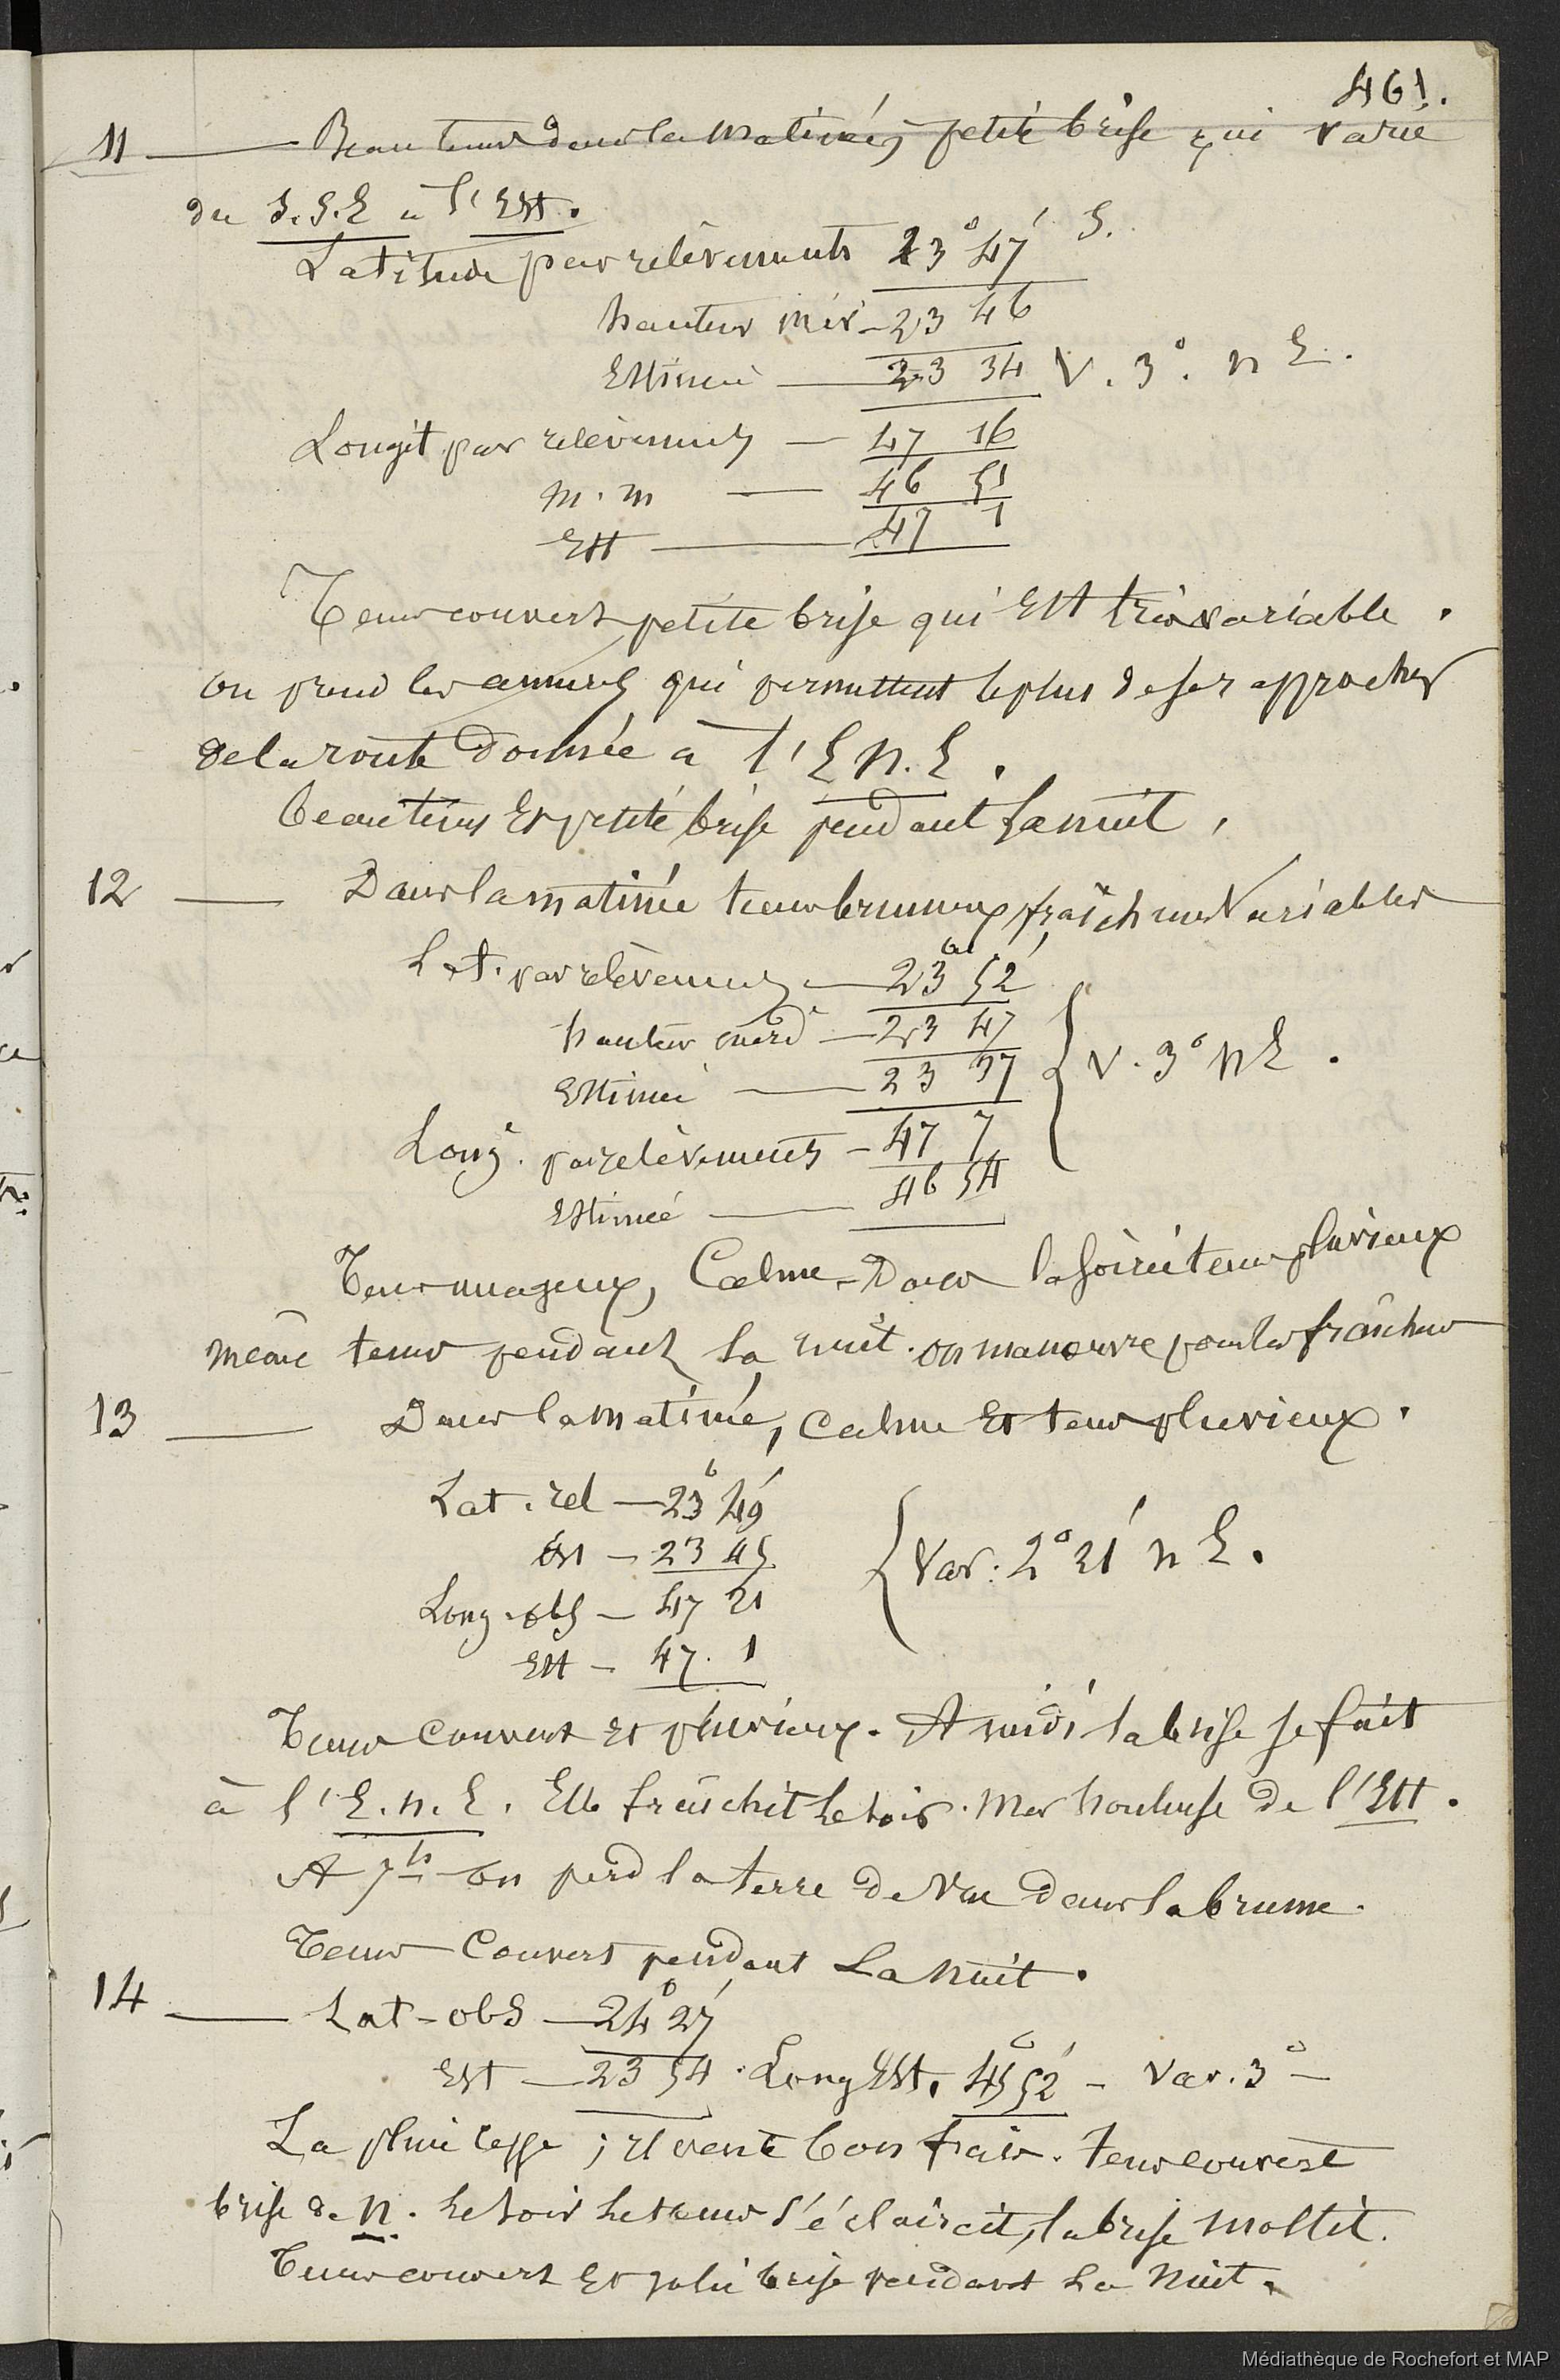 461.
11 — Beau tems dans la matinée, petite brise qui varie
du S.S.E à l'Est.
Latitude par relèvements 23° 47' S.
hauteur mér - 23 46
Estimée — 23 34 V. 3° . n E.
Longit par relèvements — 47 16
m. m — 46 51
Est — 47 1
Tems couvert petite brise qui Est très variable.
on prend les amures qui permettent le plus de se rapprocher
de la route donnée à l'E N. E.
beau tems Et petite brise pendant la nuit,
12 — Dans la matinée tems brumeux, fraîcheurs Variables
Lat. par relèvements — 23° 52'
hauteur mérd — 23 47
Estimée — 23 37 V. 3° N E.
Long. par relèvements — 47 7
Estimée — 46 54
Tems nuageux, Calme - Dans la soirée tems pluvieux
même tems pendant la nuit. on manoeuvre pour les fraîcheurs
13 — Dans la matinée, calme Et tems pluvieux.
Lat. rel — 23° 49'
Est — 23 45
Long. obs — 47 21 Var: 2° 21' n E.
Est — 47. 1
Tems Couvert Et pluvieux. A midi la brise se fait
à l'E. n. E. Elle fraîchit le soir. Mer houleuse de l'Est.
A 7h on perd la terre de vue dans la brume.
Tems Couvert pendant La nuit.
14 — Lat - obs — 24° 27'
Est — 23 54. Long Est. 45° 52' - Var. 3° —
La pluie cesse ; il vente bon frais. tems couvert
brise de N. Le soir le tems s'éclaircit, la brise mollit.
Tems couvert Et jolie brise pendant La Nuit.
Médiathèque de Rochefort et MAP